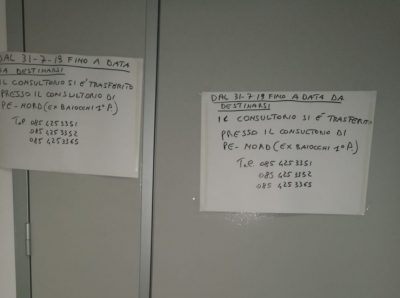 DAL 31-7-18 FINO A DATA
DA DESTINARSI
IL CONSULTORIO SI È TRASFERITO
PRESSO IL CONSULTORIO DI
PE-NORD (EX BAIOCCHI 1° P)
Tel. 085 4253351
085 4253352
085 4253365
DAL 31-7-18 FINO A DATA DA
DESTINARSI
IL CONSULTORIO SI È TRASFERITO
PRESSO IL CONSULTORIO DI
PE-NORD (EX BAIOCCHI 1° P)
Tel. 085 4253351
085 4253352
085 4253365